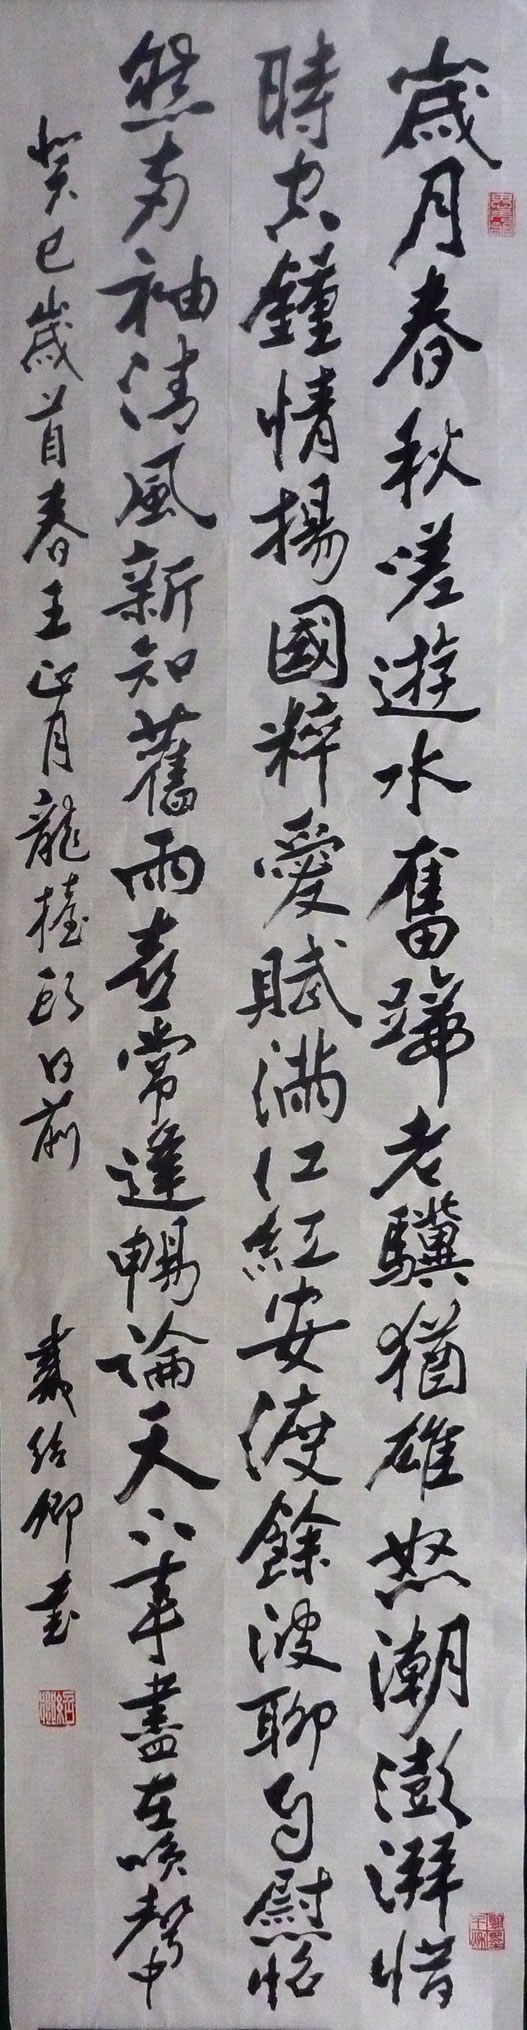 歲月春秋嗟遊水奮蹄老驥猶雄怒潮澎湃惜
時空鍾情揚國粹愛賦滿江紅安渡餘波聊自慰怡
然兩袖清風新知舊雨喜常逢暢論天下事盡在咲聲中
癸巳歲首春王正月龍擡頭日前 戴紹卿書